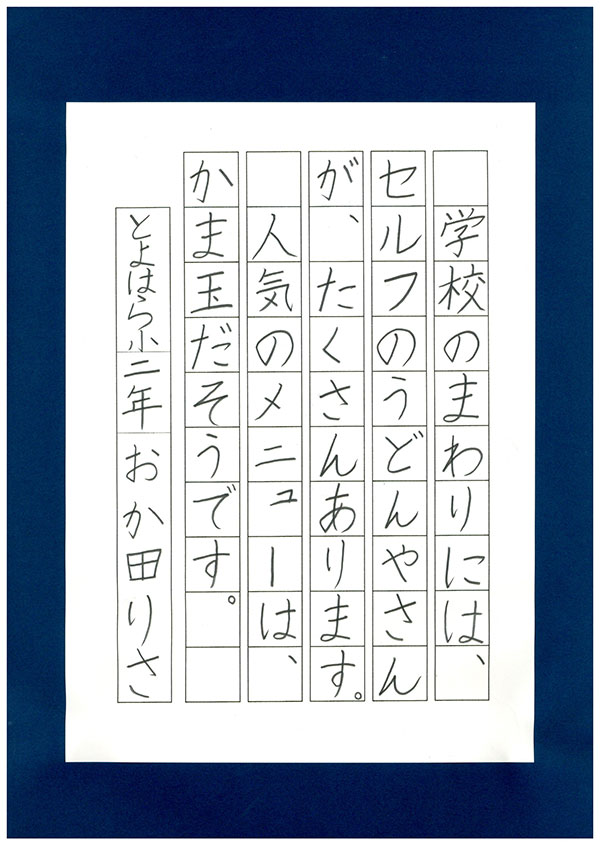 学校のまわりには、
セルフのうどんやさん
が、たくさんあります。
人気のメニューは、
かま玉だそうです。
とよはら小二年おか田りさ